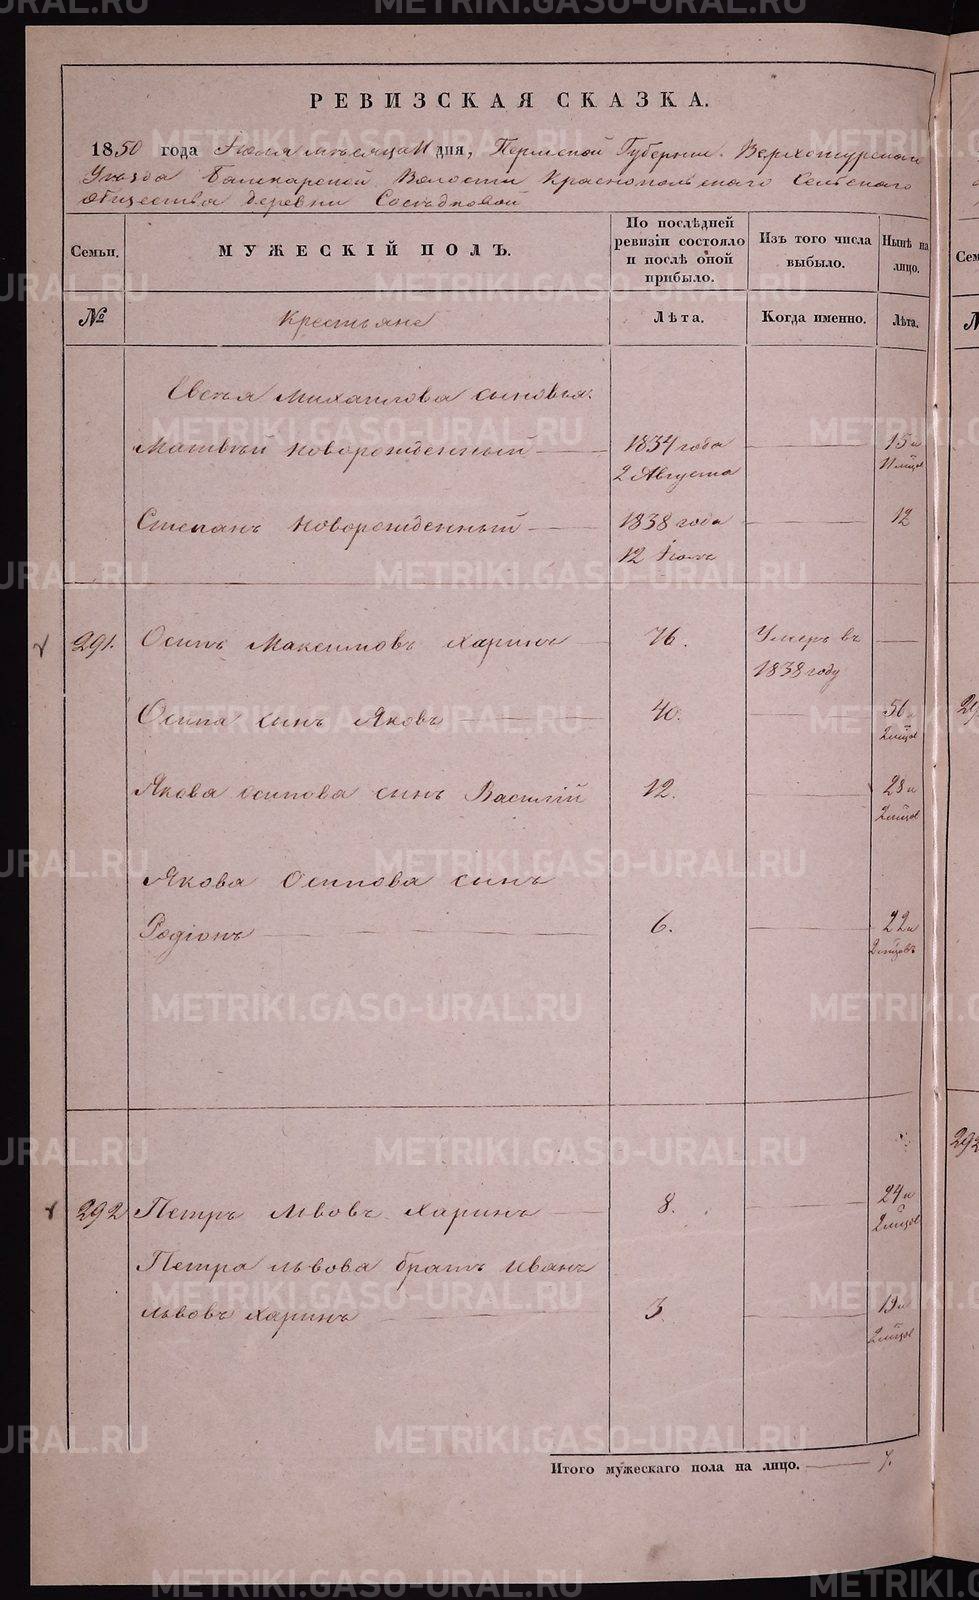 РЕВИЗСКАЯ СКАЗКА.
1850 года Июля месяца 11 дня, Пермской Губернии. Верхотурскаго
Уезда Башкарской Волости Краснопольскаго Сельскаго
общества деревни Соседковой
Семьи.
МУЖЕСКІЙ ПОЛЪ.
По послѣдней ревизіи состояло и послѣ оной прибыло.
Изъ того числа выбыло.
Нынѣ на лицо.
№
Крестьяне
Лѣта.
Когда именно.
Лѣта.
Михаилова сыновья:
Матвѣй новорожденный 1834 года 15 и
2 Августа 11 мѣсяц
Степанъ новорожденный 1838 года 12
12 Июль
291. Осипъ Максимовъ Харинъ 76. Умеръ въ
1838 году
Осипа сынъ Яковъ 40. 56 и
2 мѣсяц
Якова Осипова сынъ Василій 12. 28 и
2 мѣсяц
Якова Осипова сынъ
Родіонъ 6. 22 и
2 мѣсяцъ
292 Петръ Львовъ Харинъ 8. 24 и
2 мѣсяц
Петра Львова братъ Иванъ
Львовъ Харинъ 3. 19 и
2 мѣсяц
Итого мужескаго пола на лицо. 7.
METRIKI.GASO-URAL.RU